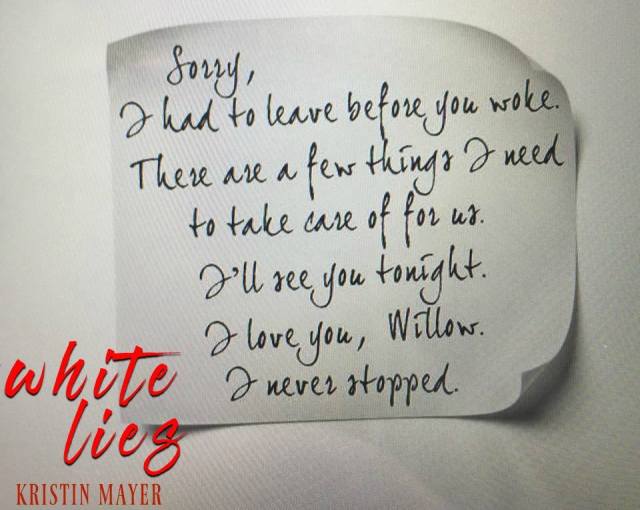 Sorry,
I had to leave before you woke.
There are a few things I need
to take care of for us.
I'll see you tonight.
I love you, Willow.
I never stopped.
white
lies
KRISTIN MAYER